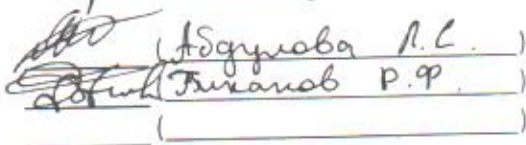 (Абдулова Л.С.)
(Биканов Р.Ф.)
( )